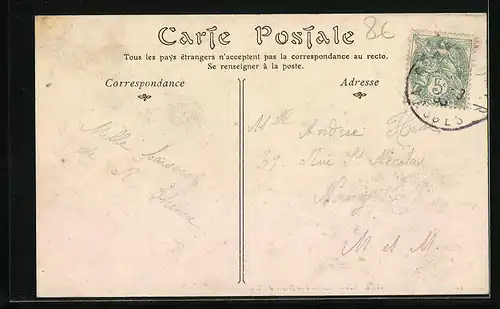 86
Carte Postale
Tous les pays étrangers n'acceptent pas la correspondance au recto.
Se renseigner à la poste.
Correspondance
Adresse
5
Mille baisers
de St Etienne
Mlle Andrée
39 Rue St Nicolas
Nancy
M et M.